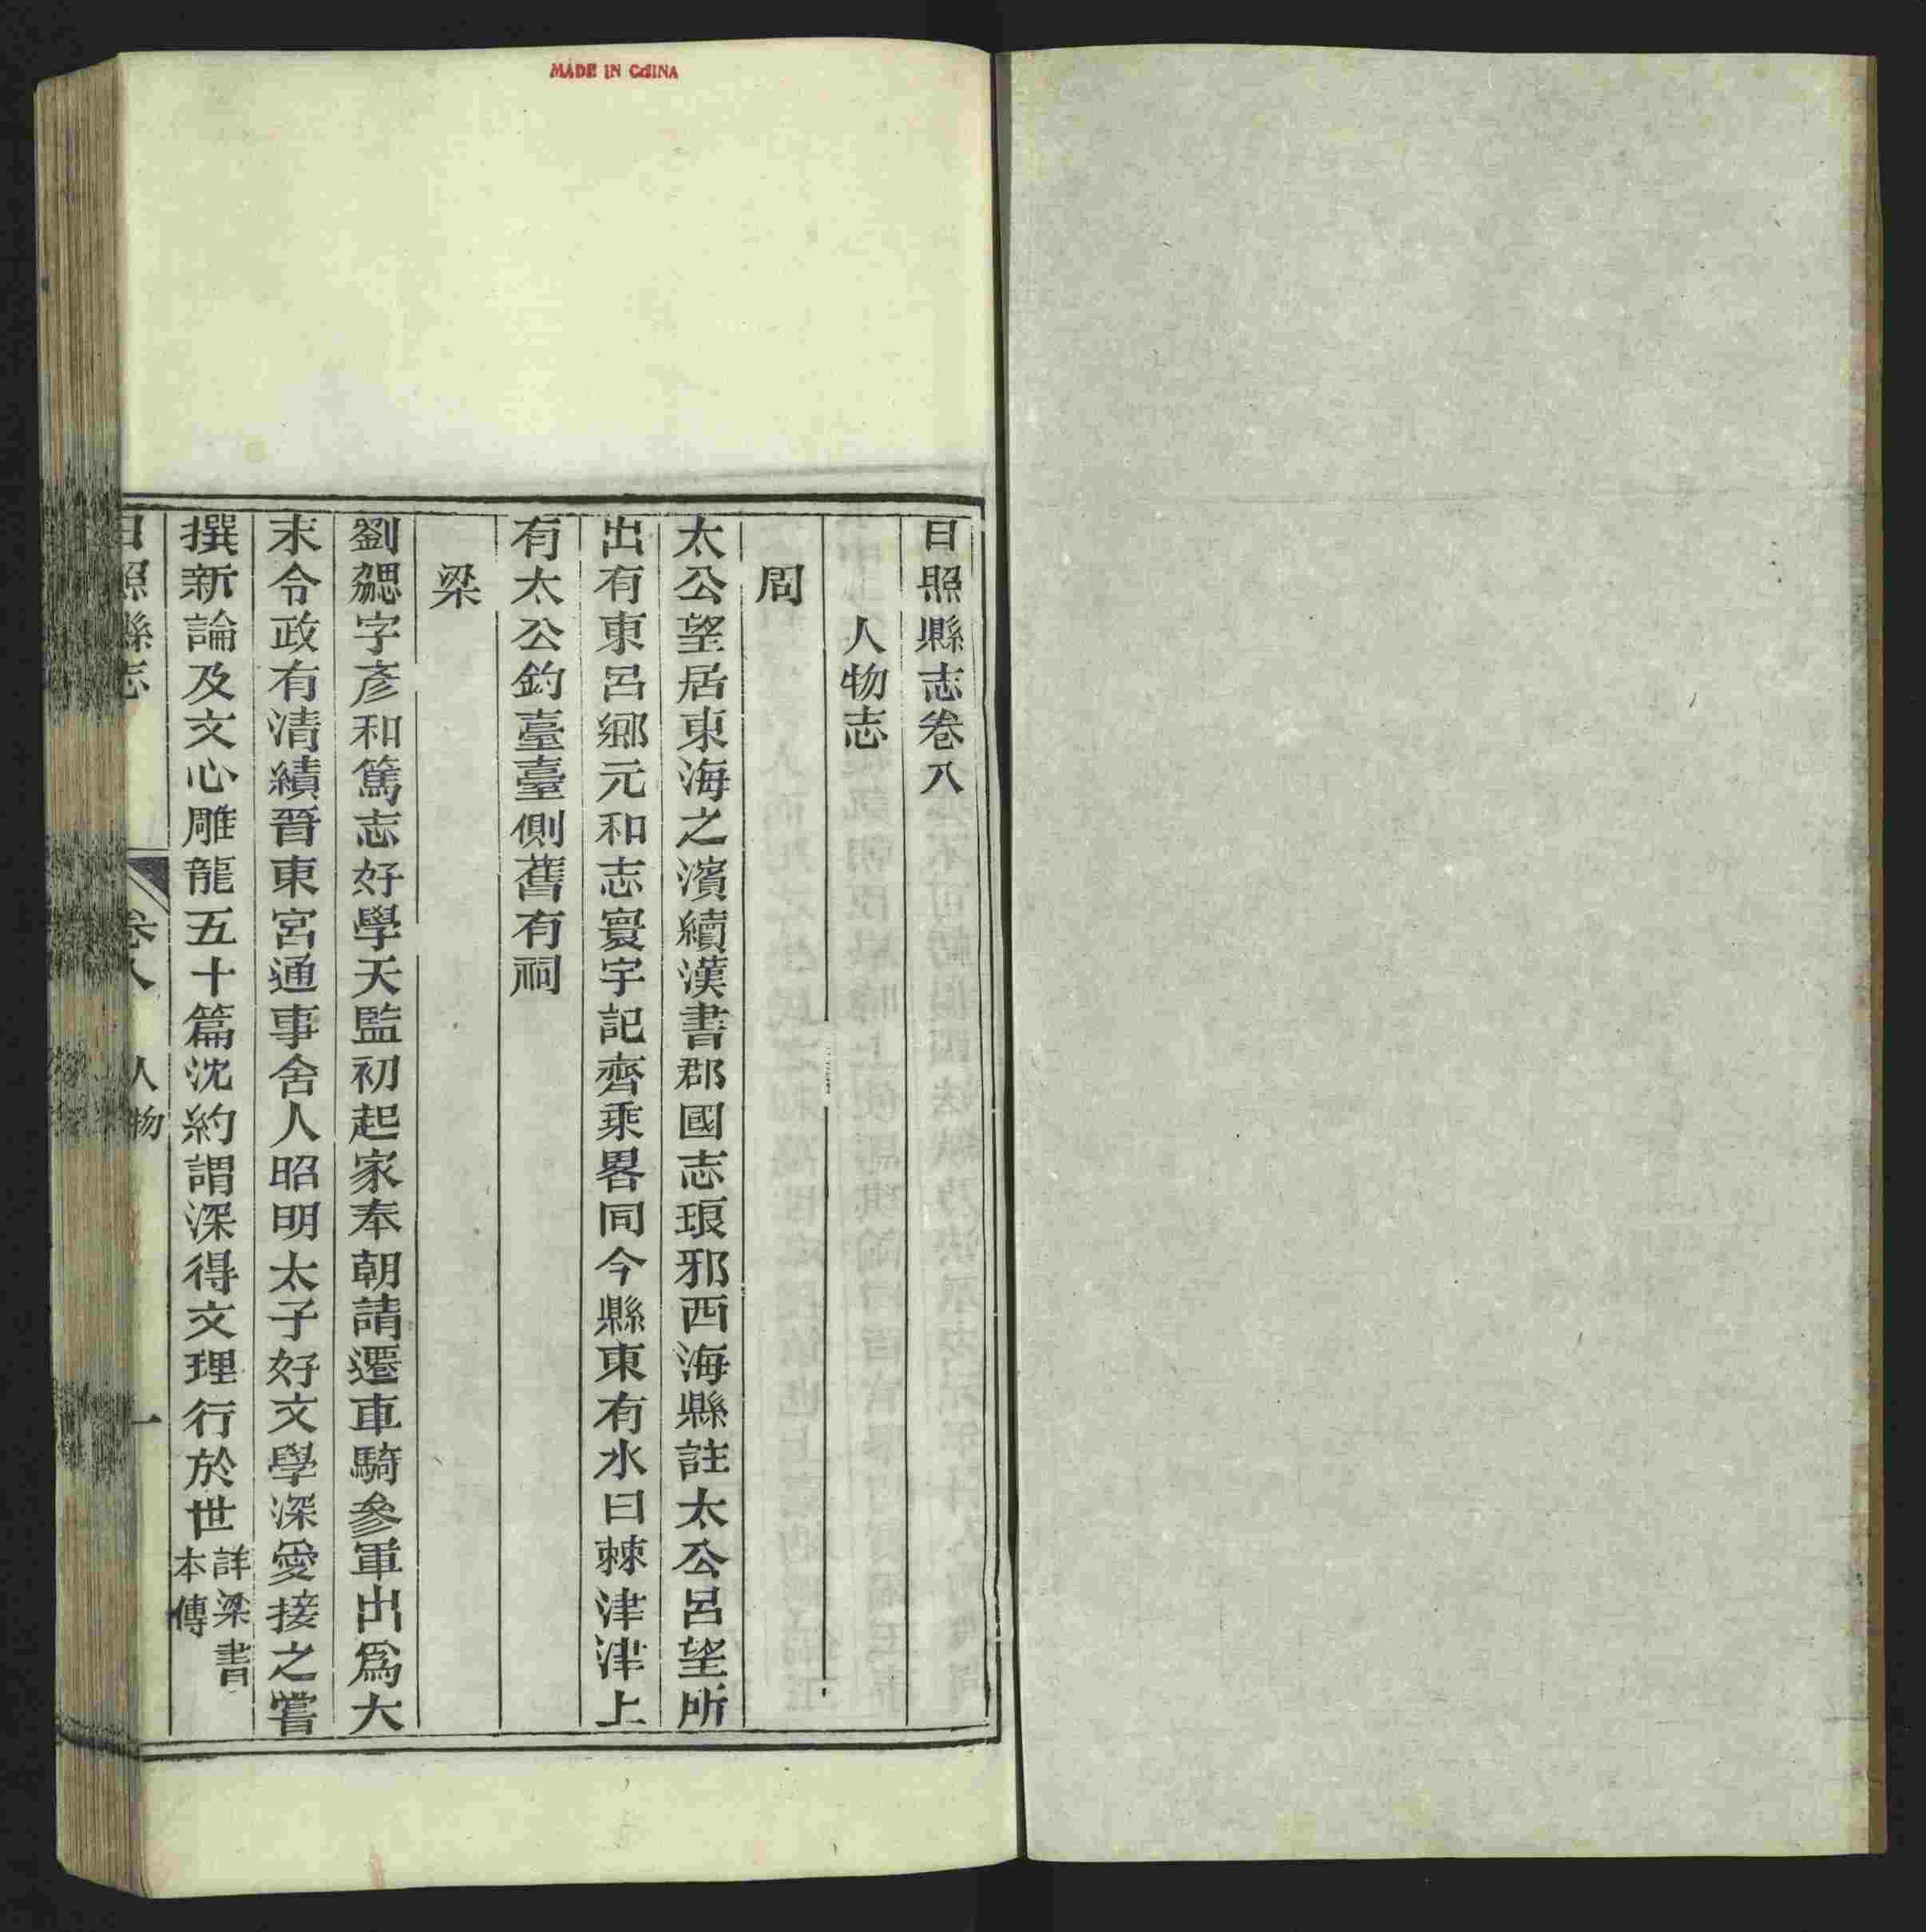 MADE IN CHINA
日照縣志卷八
人物志
周
太公望居東海之濱續漢書郡國志琅邪西海縣註太公呂望所
出有東呂鄉元和志寰宇記齊乘畧同今縣東有水曰棘津津上
有太公釣臺臺側舊有祠
梁
劉勰字彥和篤志好學天監初起家奉朝請遷車騎參軍出爲大
末令政有清績晉東宮通事舍人昭明太子好文學深愛接之嘗
撰新論及文心雕龍五十篇沈約謂深得文理行於世詳梁書
本傳
日照縣志 卷八 人物 一